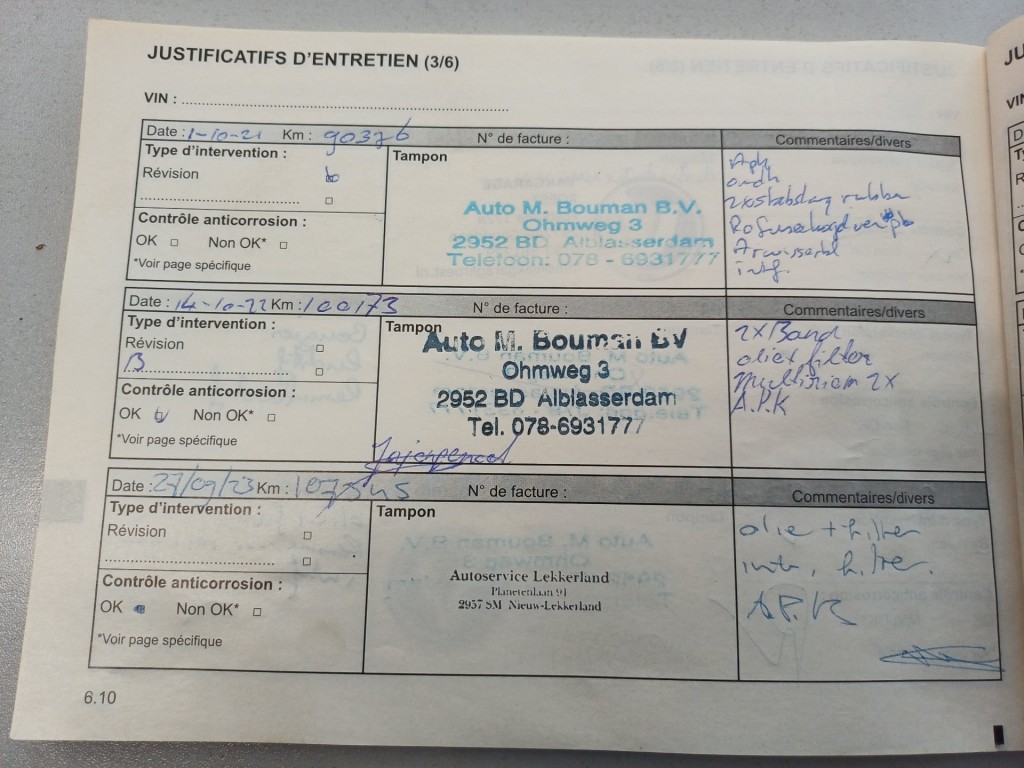 JUSTIFICATIFS D'ENTRETIEN (3/6)
VIN :
Date : 1-10-21 Km : 90376 N° de facture : Commentaires/divers
Type d'intervention :
Révision
Tampon
Contrôle anticorrosion :
OK Non OK*
*Voir page spécifique
Auto M. Bouman B.V.
Ohmweg 3
2952 BD Alblasserdam
Telefoon: 078 - 6931777
Apk
ondh
2x rubber
Date : 14-10-22 Km : 100173 N° de facture : Commentaires/divers
Type d'intervention :
Révision
B
Tampon
Contrôle anticorrosion :
OK Non OK*
*Voir page spécifique
Auto M. Bouman BV
Ohmweg 3
2952 BD Alblasserdam
Tel. 078-6931777
2x Band
olie + filter
Multiriem 2x
A.P.K
Date : 27/09/23 Km : 107545 N° de facture : Commentaires/divers
Type d'intervention :
Révision
Tampon
Contrôle anticorrosion :
OK Non OK*
*Voir page spécifique
Autoservice Lekkerland
Planetenlaan 91
2957 SM Nieuw-Lekkerland
olie + filter
filter.
A.P.K
6.10
JU
VIN